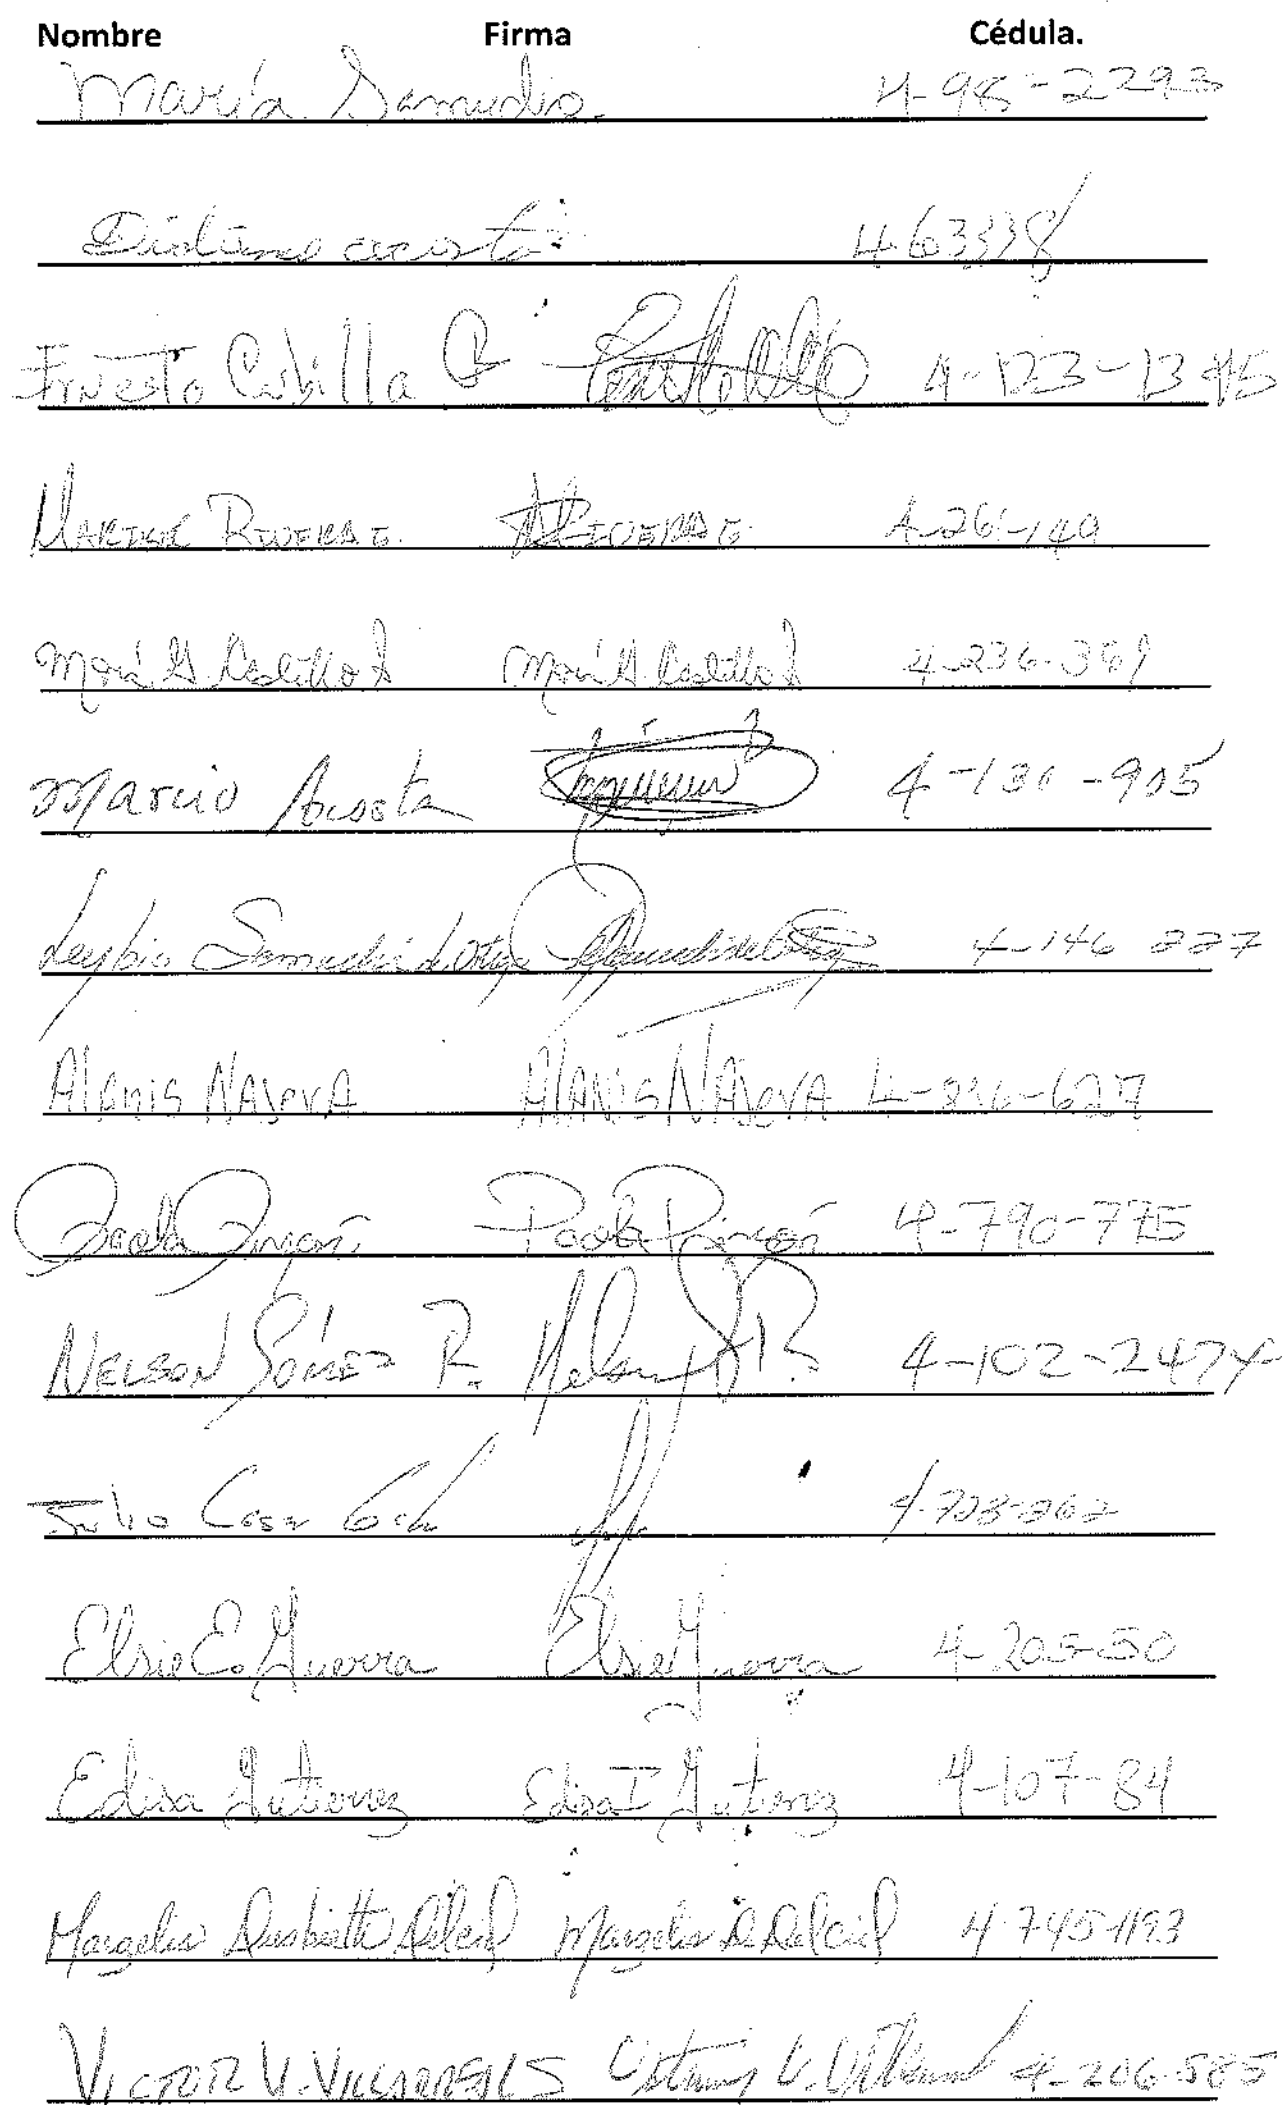 Nombre Firma Cédula.
María Samudio. 4-98-2293
acosta 4 63338
Ernesto Cubilla C 4-123-1345
MARISOL RIVERA E. RIVERA E. 4-261-149
María G. Castillo María G. Castillo 4-236-389
Marcio Acosta 4-130-905
Leybia Samudio de Ortega 4-146 227
Alanis NAJERA ALANIS NAJERA 4-836-627
Paola Pinzón Paola Pinzón 4-790-775
NELSON GÓMEZ R. Nelson R. 4-102-2474
Julio Cesar 4-708-262
Elsie E. Guerra Elsie Guerra 4-205-50
Edisa Gutierrez Edisa I Gutierrez 4-107-84
Margelis Delcid Margelis D Delcid 4-745-1193
VICTOR V. V. 4-206-585